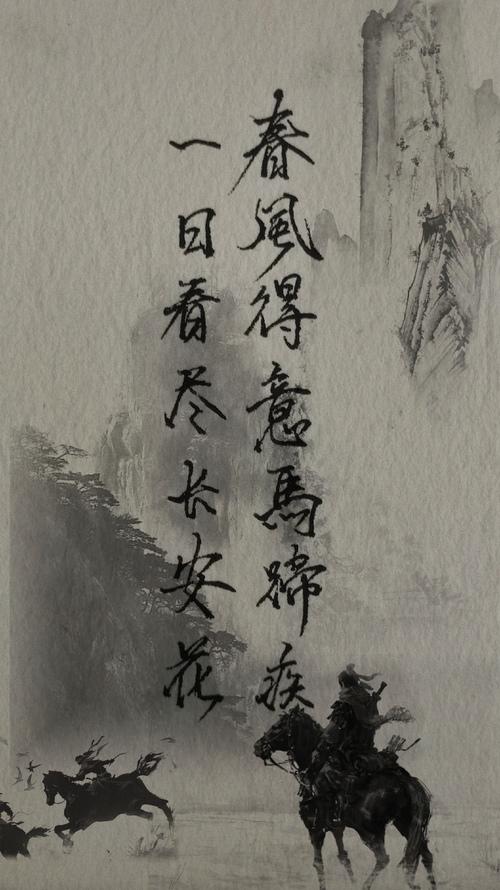 春風得意馬蹄疾
一日看尽长安花